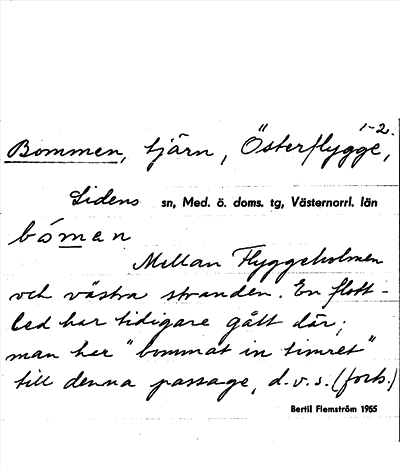 1-2.
Bommen, tjärn, Österflygge,
Lidens sn, Med. ö. doms. tg, Västernorrl. län
bómen
Mellan Flyggeholmen
och västra stranden. En flott-
led har tidigare gått där;
man har "bommat in timret"
till denna passage, d.v.s. (forts.)
Bertil Flemström 1965